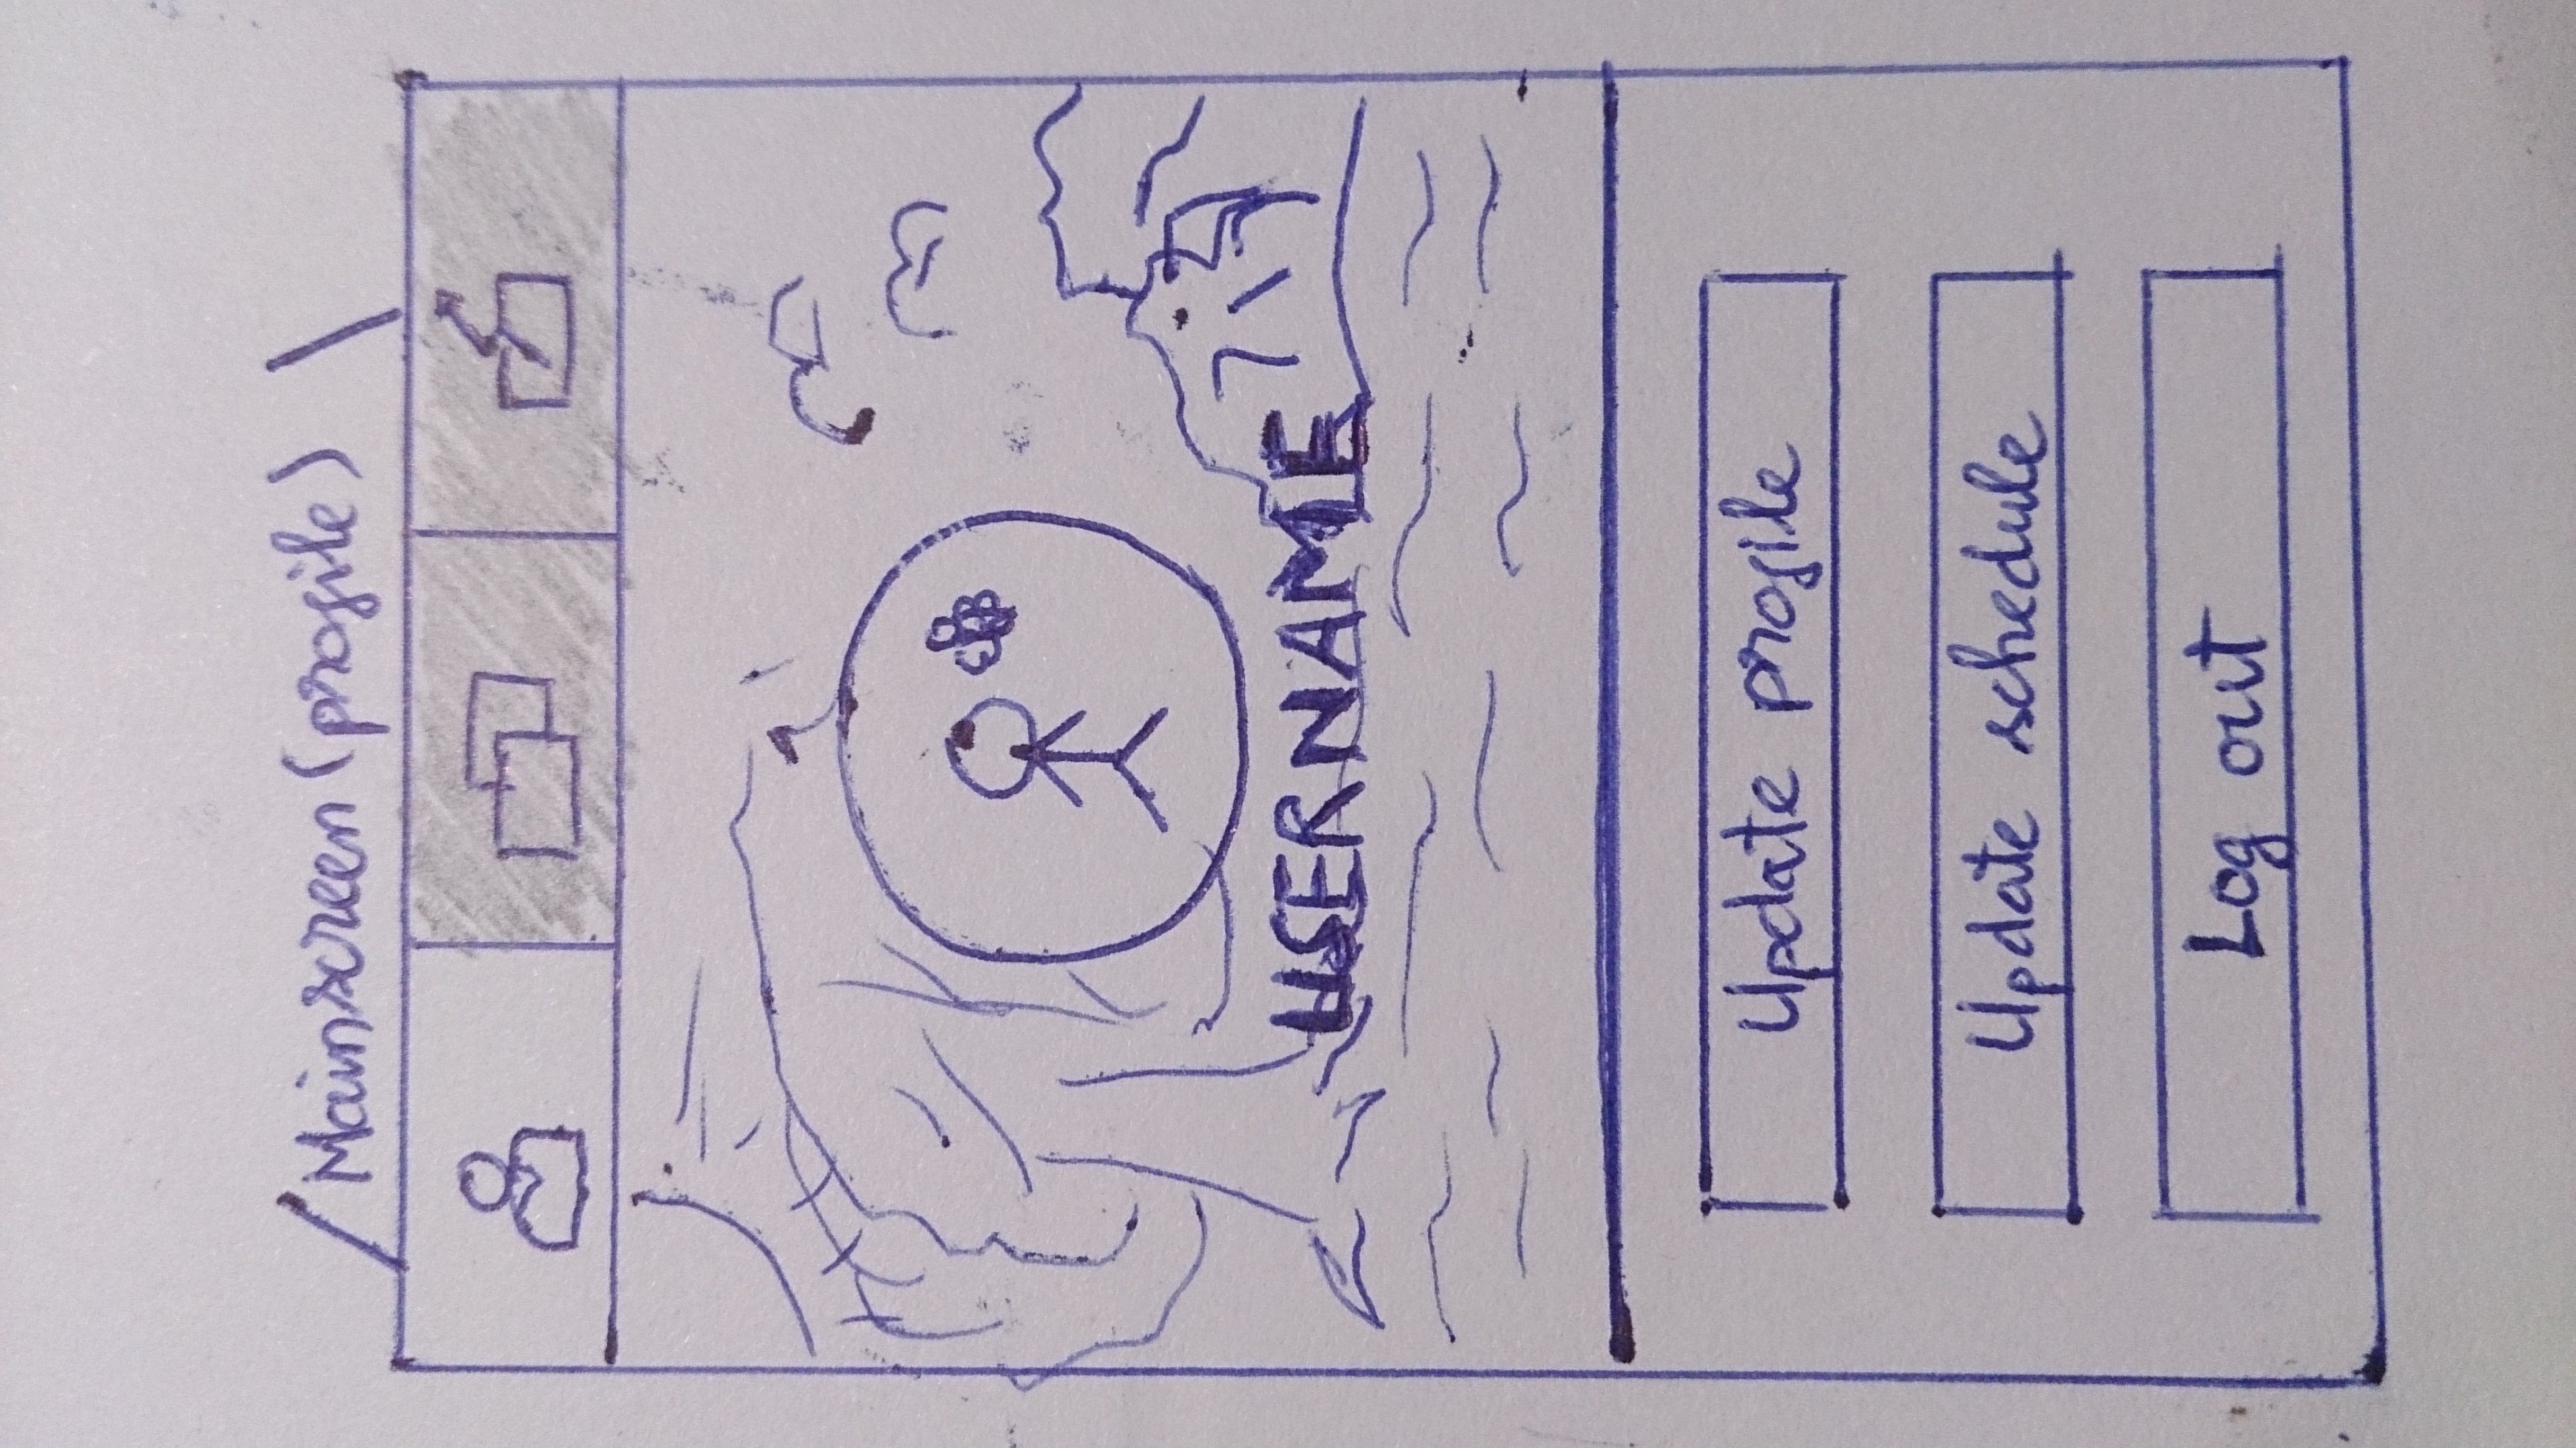 Mainscreen (profile)
USERNAME
Update profile
Update schedule
Log out